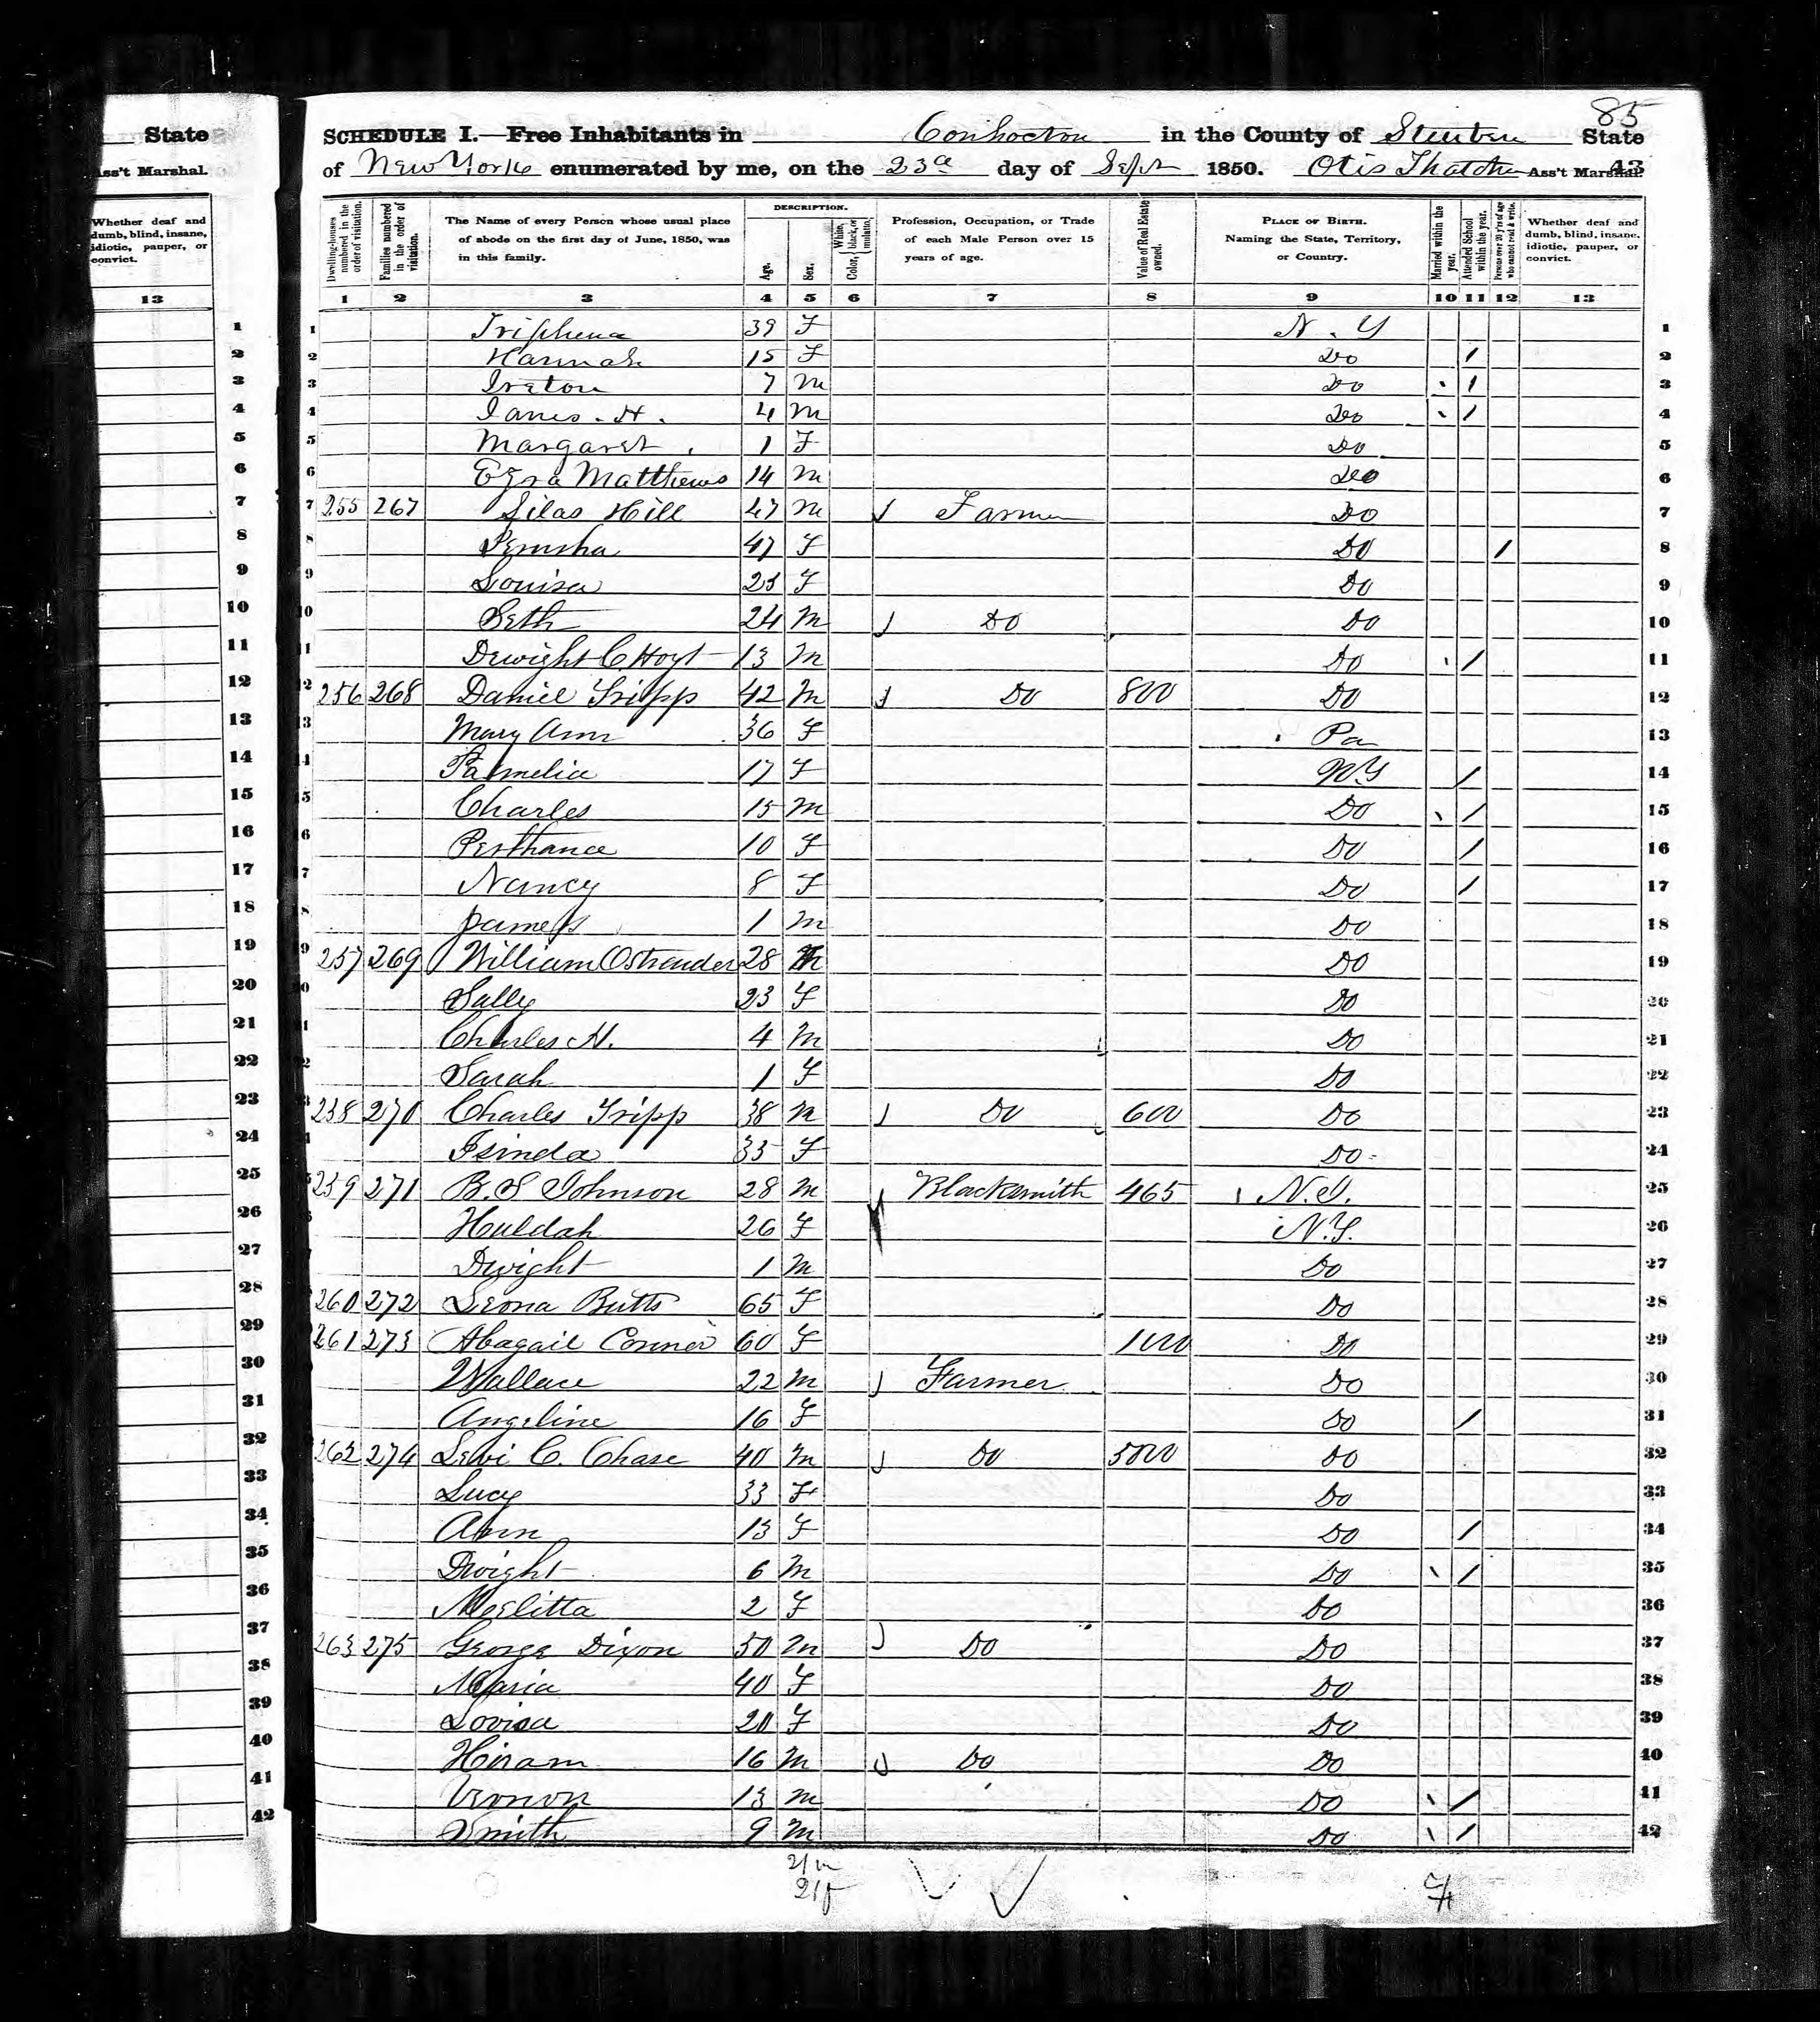 85
State
Ass't Marshal.
Whether deaf and dumb, blind, insane, idiotic, pauper, or convict.
13
SCHEDULE I.—Free Inhabitants in Conhocton in the County of Steuben State
of New York enumerated by me, on the 23d day of Sept 1850. Otis Thatcher Ass't Marshal. 43
Dwelling-houses numbered in the order of visitation.
Families numbered in the order of visitation.
The Name of every Person whose usual place of abode on the first day of June, 1850, was in this family.
DESCRIPTION.
Age.
Sex.
Color, { White, black, or mulatto.
Profession, Occupation, or Trade of each Male Person over 15 years of age.
Value of Real Estate owned.
PLACE OF BIRTH. Naming the State, Territory, or Country.
Married within the year.
Attended School within the year.
Persons over 20 y'rs of age who cannot read & write.
Whether deaf and dumb, blind, insane, idiotic, pauper, or convict.
1 2 3 4 5 6 7 8 9 10 11 12 13
1 Triphena 39 F N. Y 1
2 Hannah 15 F Do / 2
3 Ireton 7 M Do / 3
4 James. H. 4 M Do / 4
5 Margaret 1 F Do 5
6 Ezra Matthews 14 M Do 6
7 255 267 Silas Hill 47 M Farmer Do 7
8 47 F Do / 8
9 Louisa 23 F Do 9
10 Seth 24 M Do Do 10
11 Dwight C. Hoyt 13 M Do / 11
12 256 268 Daniel Tripp 42 M Do 800 Do 12
13 Mary Ann 36 F Pa 13
14 Palmelia 17 F N.Y / 14
15 Charles 15 M Do / 15
16 10 F Do / 16
17 Nancy 8 F Do / 17
18 James 1 M Do 18
19 257 269 William Ostrander 28 M Do 19
20 Sally 23 F Do 20
21 Charles H. 4 M Do 21
22 Sarah 1 F Do 22
23 258 270 Charles Tripp 38 M Do 600 Do 23
24 35 F Do 24
25 259 271 B. S Johnson 28 M Blacksmith 465 N.J. 25
26 Huldah 26 F N.Y. 26
27 Dwight 1 M Do 27
28 260 272 Leona Butts 65 F Do 28
29 261 273 Abagail Conner 60 F 1000 Do 29
30 Wallace 22 M Farmer Do 30
31 Angeline 16 F Do / 31
32 262 274 Levi C. Chase 40 M Do 5000 Do 32
33 Lucy 33 F Do 33
34 Ann 13 F Do / 34
35 Dwight 6 M Do / 35
36 Melitta 2 F Do 36
37 263 275 George Dixon 50 M Do Do 37
38 Maria 40 F Do 38
39 Lovisa 20 F Do 39
40 Hiram 16 M Do Do 40
41 Vernon 13 M Do / 41
42 Smith 9 M Do / 42
21 m
21 f